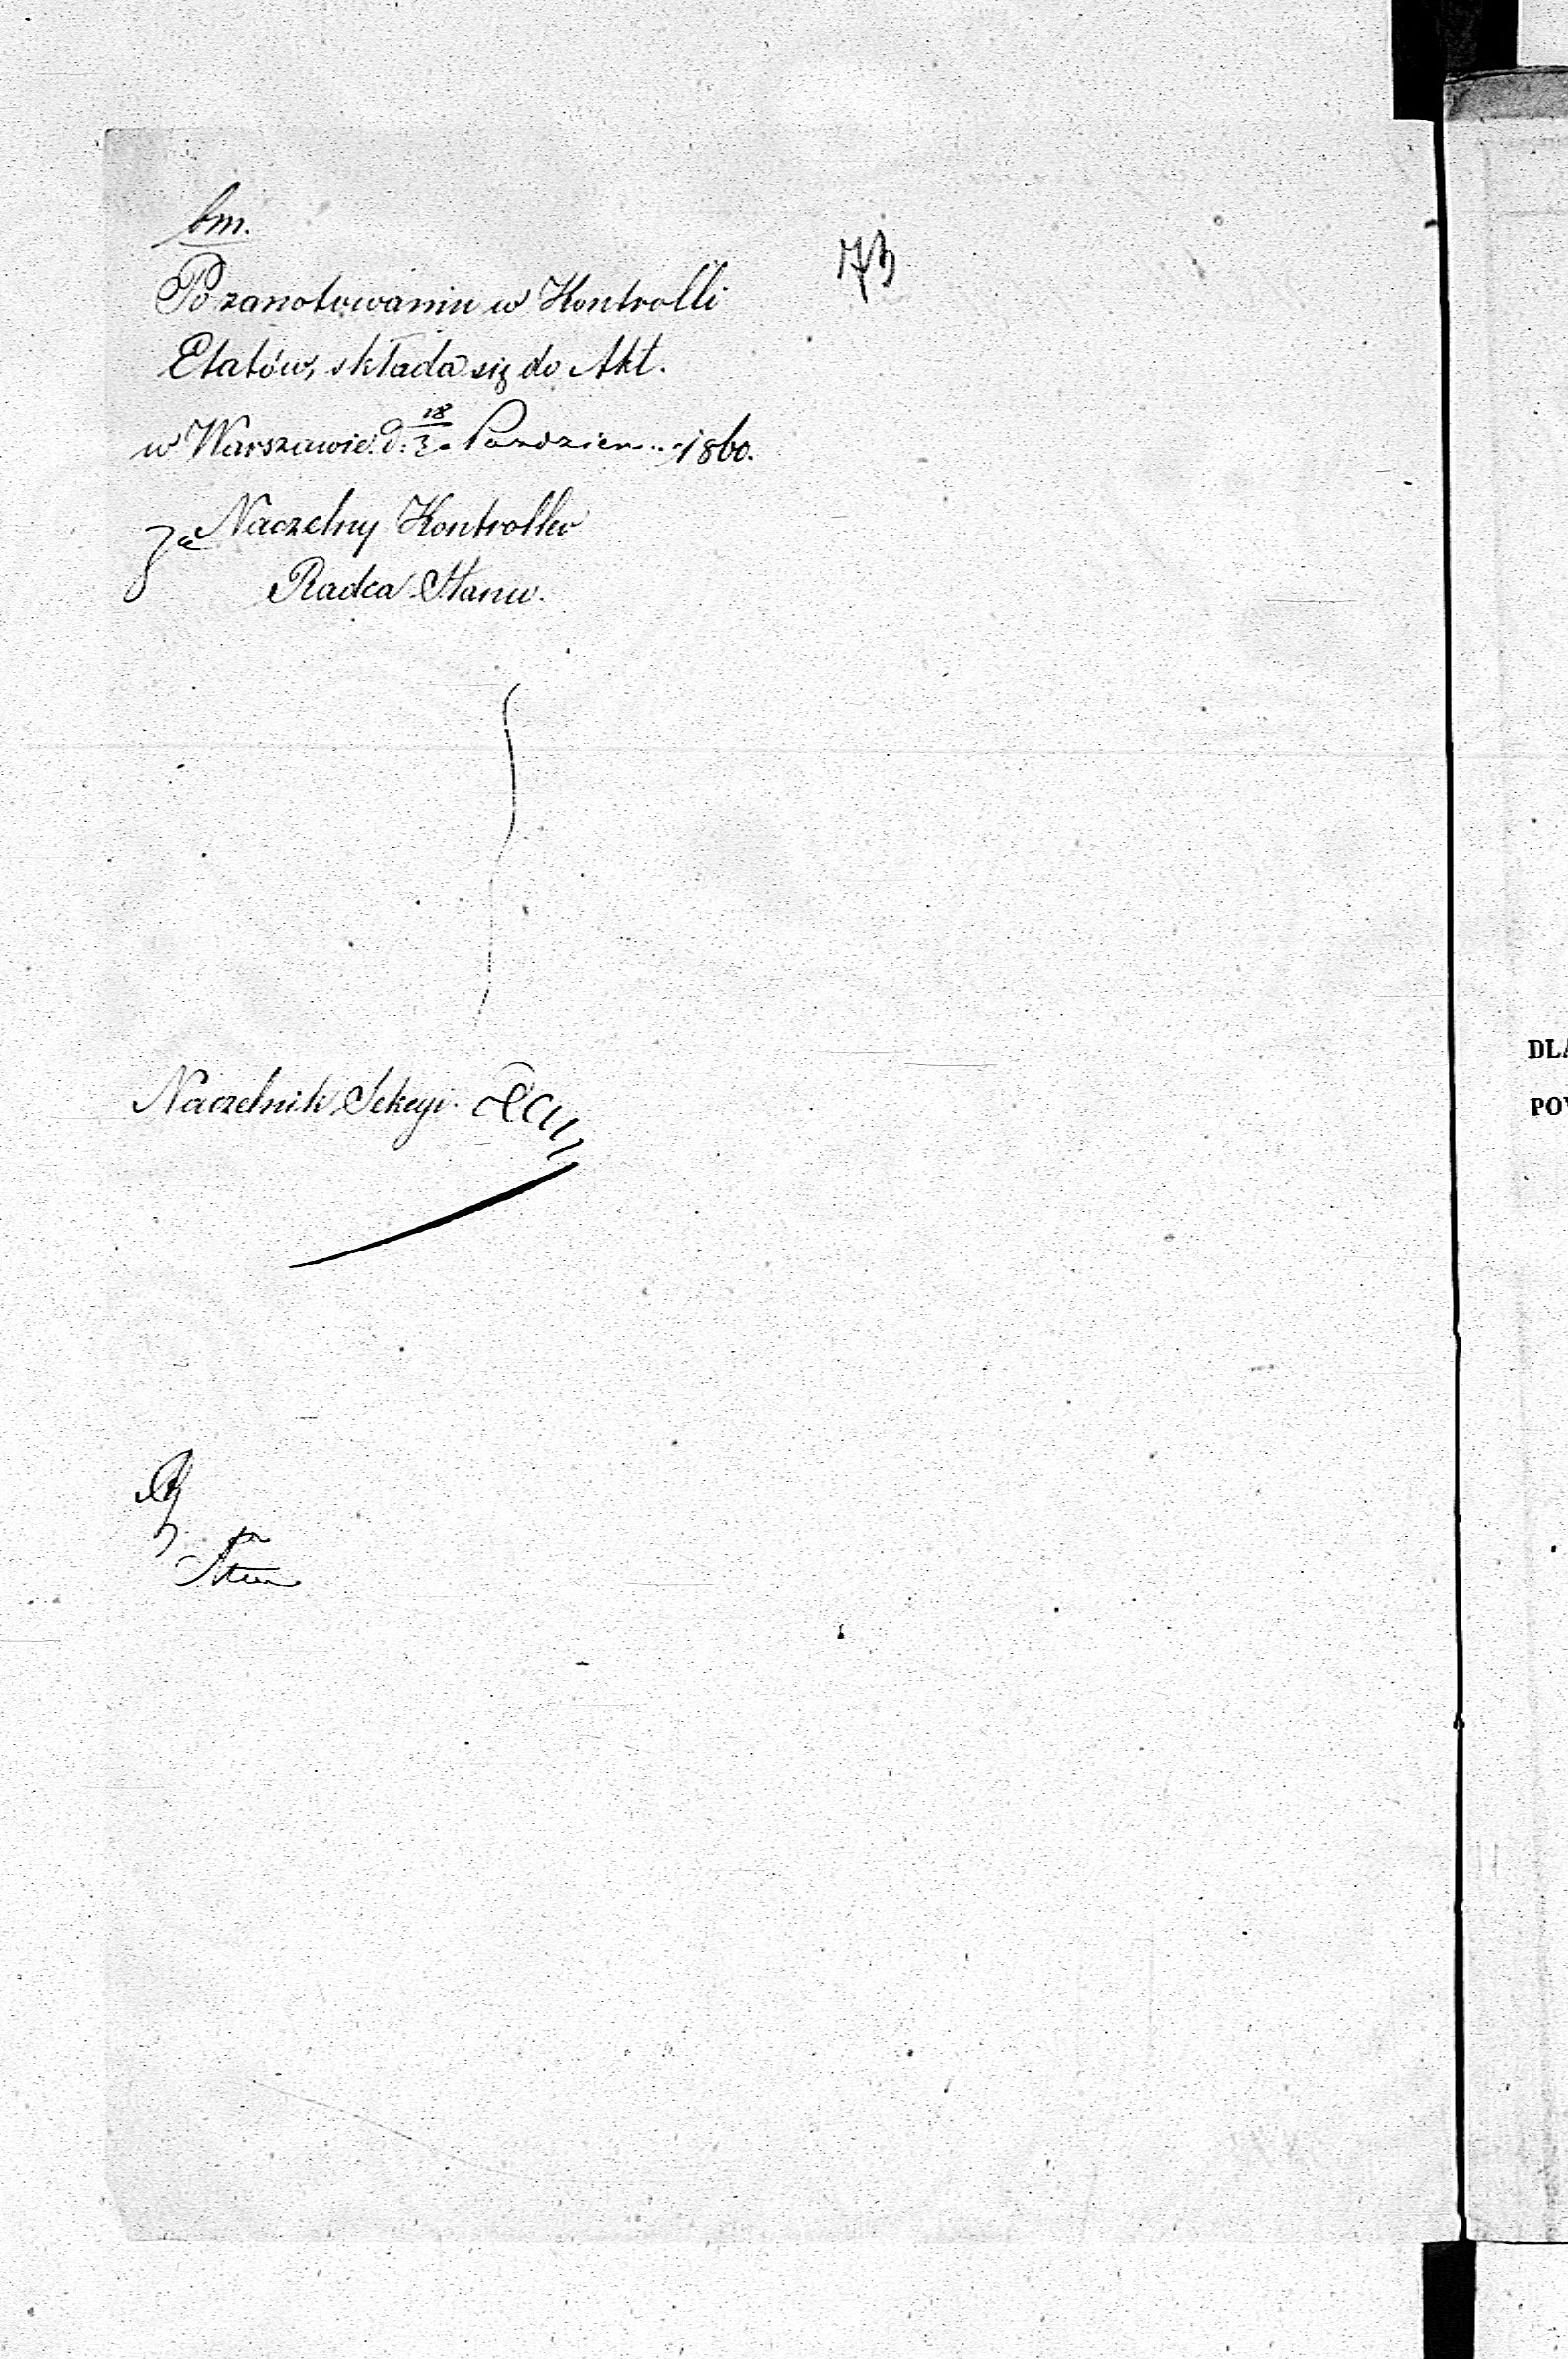 bm.
73
Po zanotowaniu w Kontrolli
Etatów, składa się do Akt.
w Warszawie d. 18/3 Pazdzier. 1860.
Za Naczelny Kontroller
Radca Stanu.
Naczelnik Sekcyi.
DLA
POW